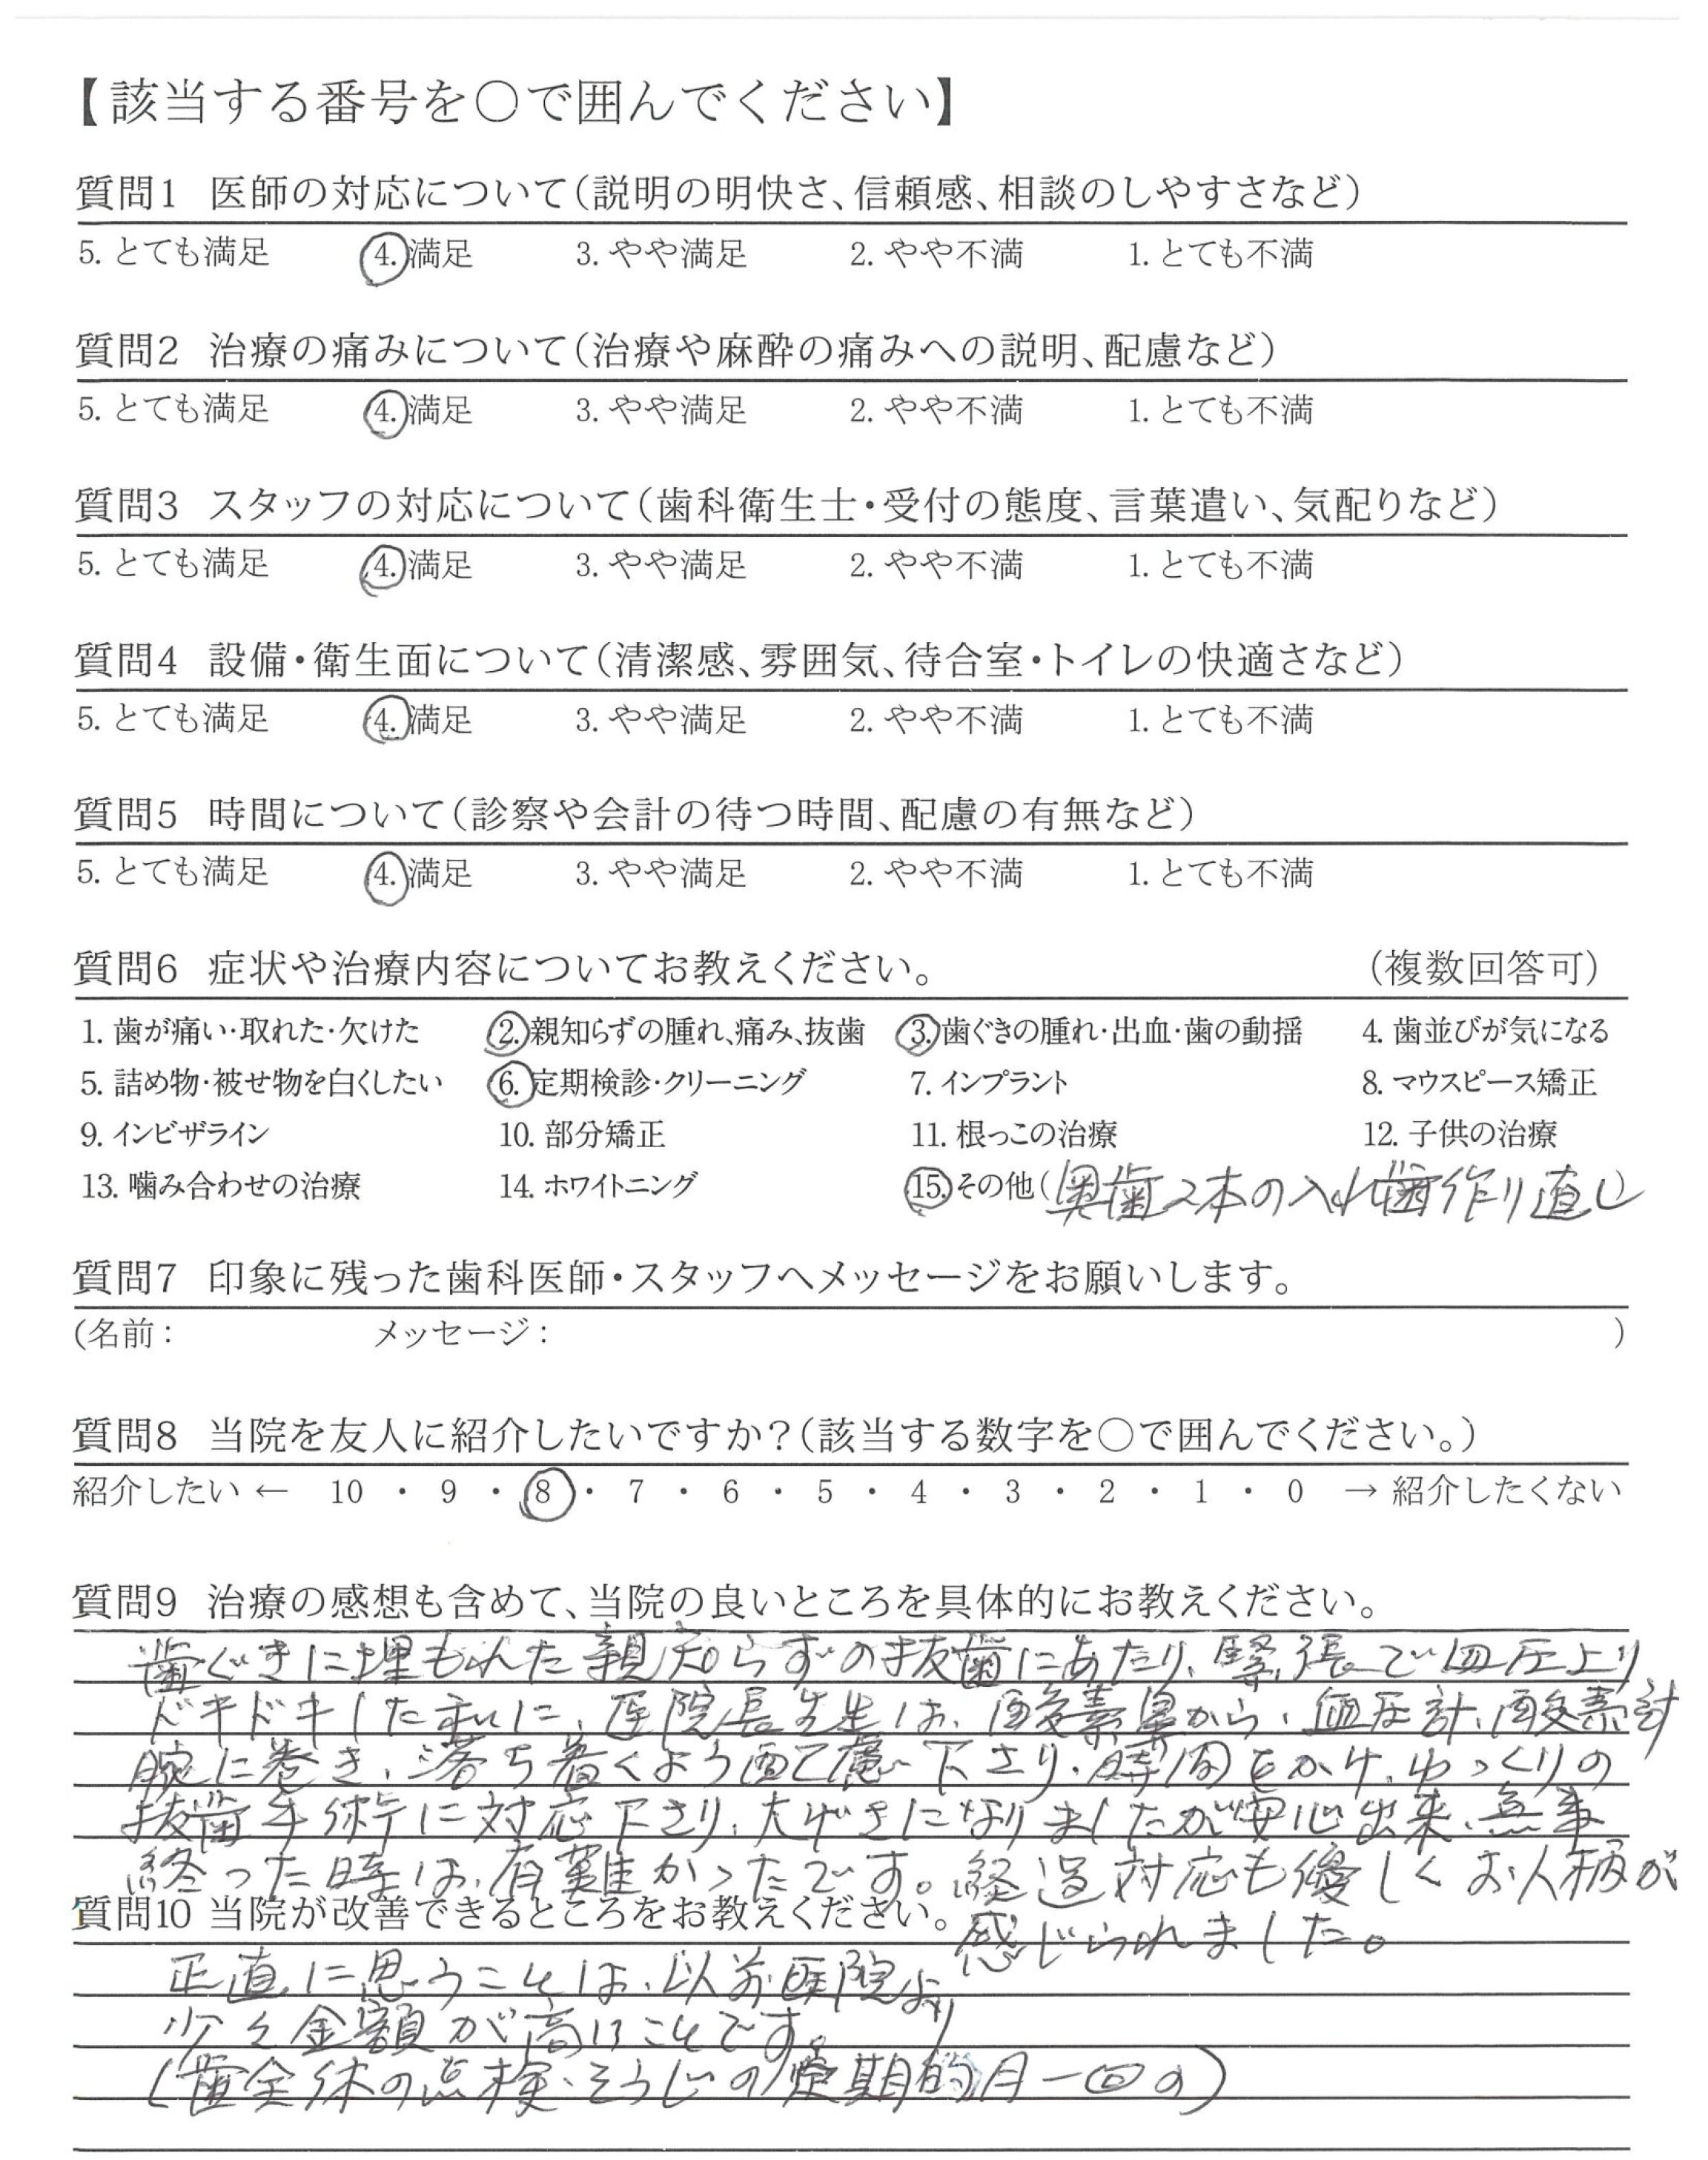 【該当する番号を○で囲んでください】
質問1 医師の対応について（説明の明快さ、信頼感、相談のしやすさなど）
5. とても満足 4. 満足 3. やや満足 2. やや不満 1. とても不満
質問2 治療の痛みについて（治療や麻酔の痛みへの説明、配慮など）
5. とても満足 4. 満足 3. やや満足 2. やや不満 1. とても不満
質問3 スタッフの対応について（歯科衛生士・受付の態度、言葉遣い、気配りなど）
5. とても満足 4. 満足 3. やや満足 2. やや不満 1. とても不満
質問4 設備・衛生面について（清潔感、雰囲気、待合室・トイレの快適さなど）
5. とても満足 4. 満足 3. やや満足 2. やや不満 1. とても不満
質問5 時間について（診察や会計の待つ時間、配慮の有無など）
5. とても満足 4. 満足 3. やや満足 2. やや不満 1. とても不満
質問6 症状や治療内容についてお教えください。 （複数回答可）
1. 歯が痛い・取れた・欠けた 2. 親知らずの腫れ、痛み、抜歯 3. 歯ぐきの腫れ・出血・歯の動揺 4. 歯並びが気になる
5. 詰め物・被せ物を白くしたい 6. 定期検診・クリーニング 7. インプラント 8. マウスピース矯正
9. インビザライン 10. 部分矯正 11. 根っこの治療 12. 子供の治療
13. 噛み合わせの治療 14. ホワイトニング 15. その他（奥歯2本の入れ歯作り直し）
質問7 印象に残った歯科医師・スタッフへメッセージをお願いします。
（名前： メッセージ： ）
質問8 当院を友人に紹介したいですか？（該当する数字を○で囲んでください。）
紹介したい ← 10 ・ 9 ・ 8 ・ 7 ・ 6 ・ 5 ・ 4 ・ 3 ・ 2 ・ 1 ・ 0 → 紹介したくない
質問9 治療の感想も含めて、当院の良いところを具体的にお教えください。
歯ぐきに埋もれた親知らずの抜歯にあたり、緊張で血圧上り
ドキドキした私に、医院長先生は、酸素鼻から、血圧計、酸素計
腕に巻き、落ち着くよう配慮下さり、時間をかけ、ゆっくりの
抜歯手術に対応下さり、大げさになりましたが安心出来、無事
終った時は、有難かったです。経過対応も優しくお人柄が
感じられました。
質問10 当院が改善できるところをお教えください。
正直に思うことは、以前医院より
少々金額が高いことです。
（歯全体の点検、そうじの定期的月一回の）